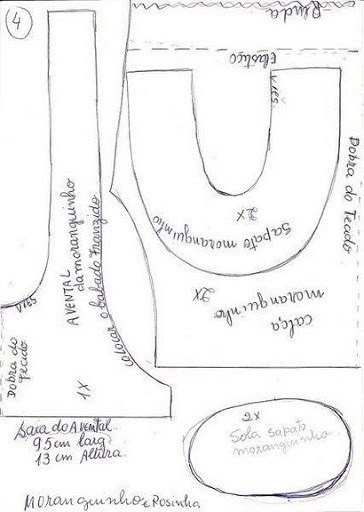 4
Renda
Elastico
viés
Dobra do Tecido
2x
Sapato moranguinho
2x
calça
moranguinho
AVENTAL
da moranguinho
colocar o babado Franzido
viés
Dobra do
Tecido
1X
Saia do Avental
95 cm larg
13 cm Altura.
2x
Sola sapato
moranguinho
Moranguinho e Rosinha